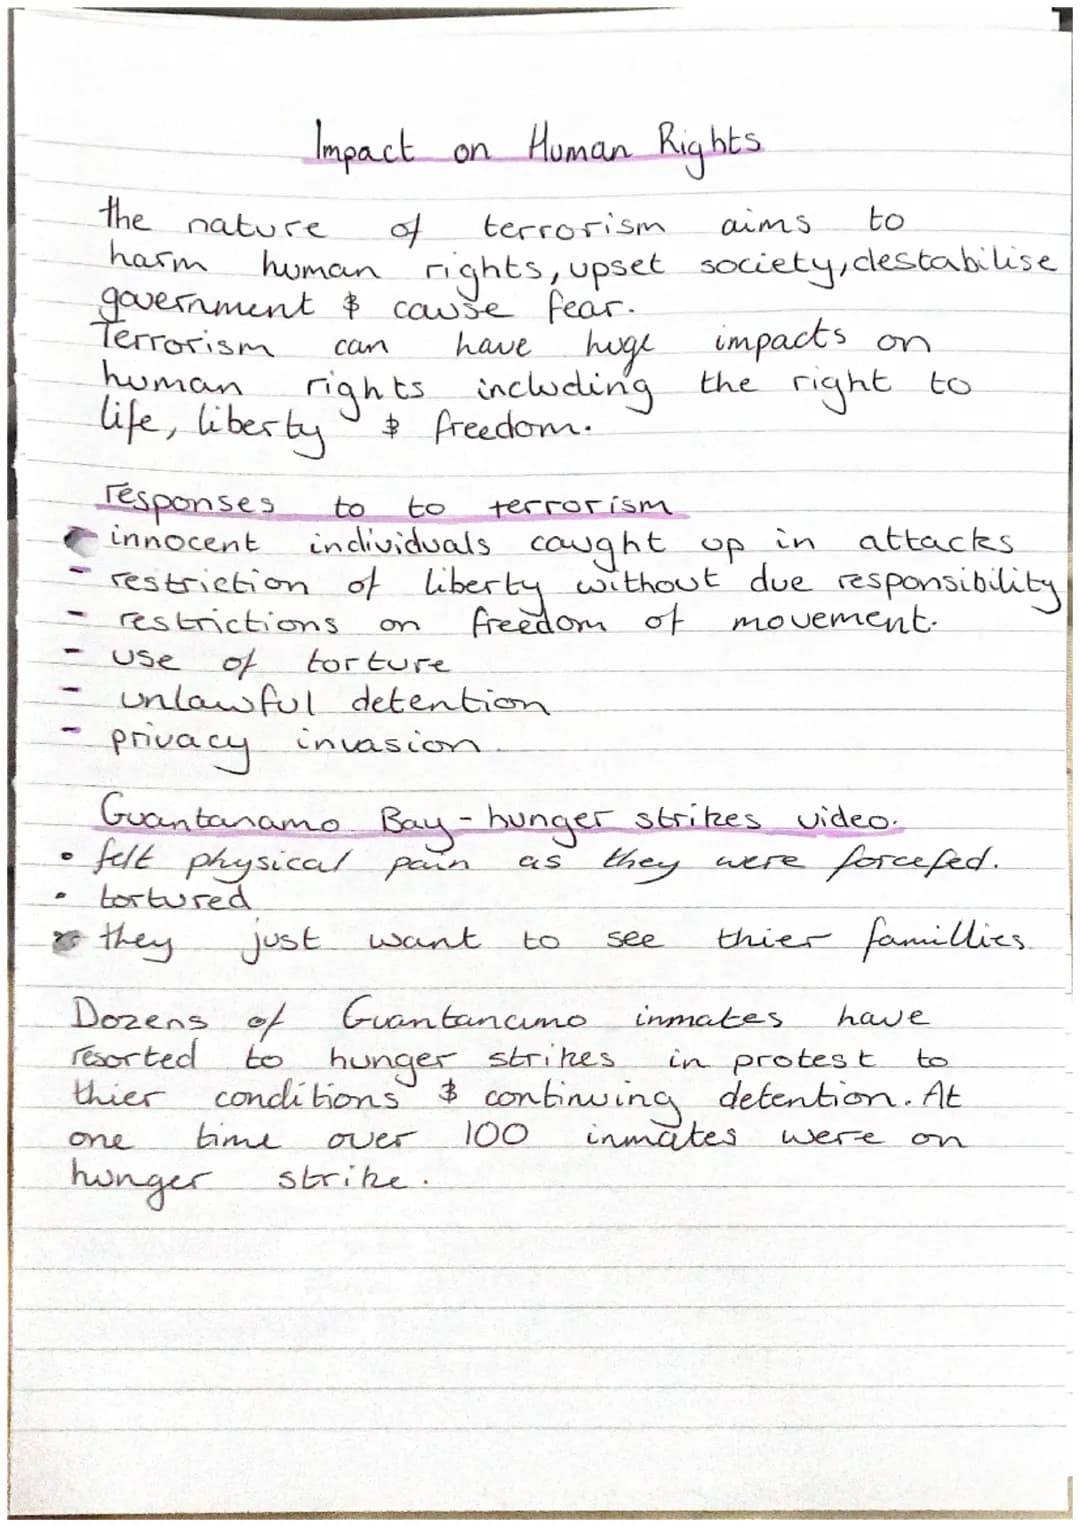 Impact on Human Rights
the nature of terrorism aims to
harm human rights, upset society, destabilise
government & cause fear.
Terrorism can have huge impacts on
human rights including the right to
life, liberty & freedom.
responses to to terrorism
- innocent individuals caught up in attacks
- restriction of liberty without due responsibility
- restrictions on freedom of movement.
- use of torture
- unlawful detention
- privacy invasion.
Guantanamo Bay - hunger strikes video.
• felt physical pain as they were forcefed.
• tortured
• they just want to see thier famillies.
Dozens of Guantanamo inmates have
resorted to hunger strikes in protest to
thier conditions & continuing detention. At
one time over 100 inmates were on
hunger strike.